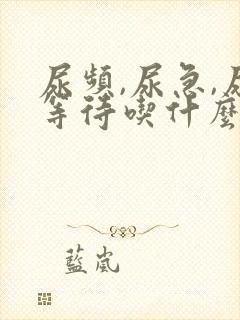 尿頻,尿急,尿
等待喫什麼
藍嵐